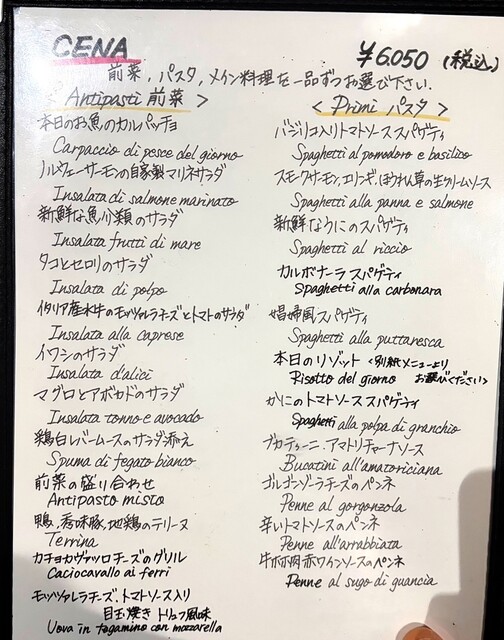 CENA
¥6.050 (税込)
前菜、パスタ、メイン料理を一品ずつお選び下さい.
Antipasti 前菜 >
本日のお魚のカルパッチョ
Carpaccio di pesce del giorno
ノルウェーサーモンの自家製マリネサラダ
Insalata di salmone marinato
新鮮な魚介類のサラダ
Insalata frutti di mare
タコとセロリのサラダ
Insalata di polpo
イタリア産水牛のモッツァレラチーズとトマトのサラダ
Insalata alla caprese
イワシのサラダ
Insalata d'alici
マグロとアボカドのサラダ
Insalata tonno e avocado
鶏白レバームースのサラダ添え
Spuma di fegato bianco
前菜の盛り合わせ
Antipasto misto
鴨、香味豚、地鶏のテリーヌ
Terrina
カチョカヴァッロチーズのグリル
Caciocavallo ai ferri
モッツァレラチーズ、トマトソース入り
目玉焼き トリュフ風味
Uova in tegamino con mozzarella
< Primi パスタ >
バジリコ入りトマトソース スパゲティ
Spaghetti al pomodoro e basilico
スモークサーモン、エリンギ、ほうれん草の生クリームソース
Spaghetti alla panna e salmone
新鮮なうにのスパゲティ
Spaghetti al riccio
カルボナーラ スパゲティ
Spaghetti alla carbonara
娼婦風スパゲティ
Spaghetti alla puttaresca
本日のリゾット <別紙メニューより
Risotto del giorno お選びください>
かにのトマトソース スパゲティ
Spaghetti alla polpa di granchio
ブカティーニ、アマトリチャーナソース
Bucatini all'amatoriciana
ゴルゴンゾーラチーズのペンネ
Penne al gorgonzola
辛いトマトソースのペンネ
Penne all'arrabbiata
牛ホホ肉赤ワインソースのペンネ
Penne al sugo di guancia